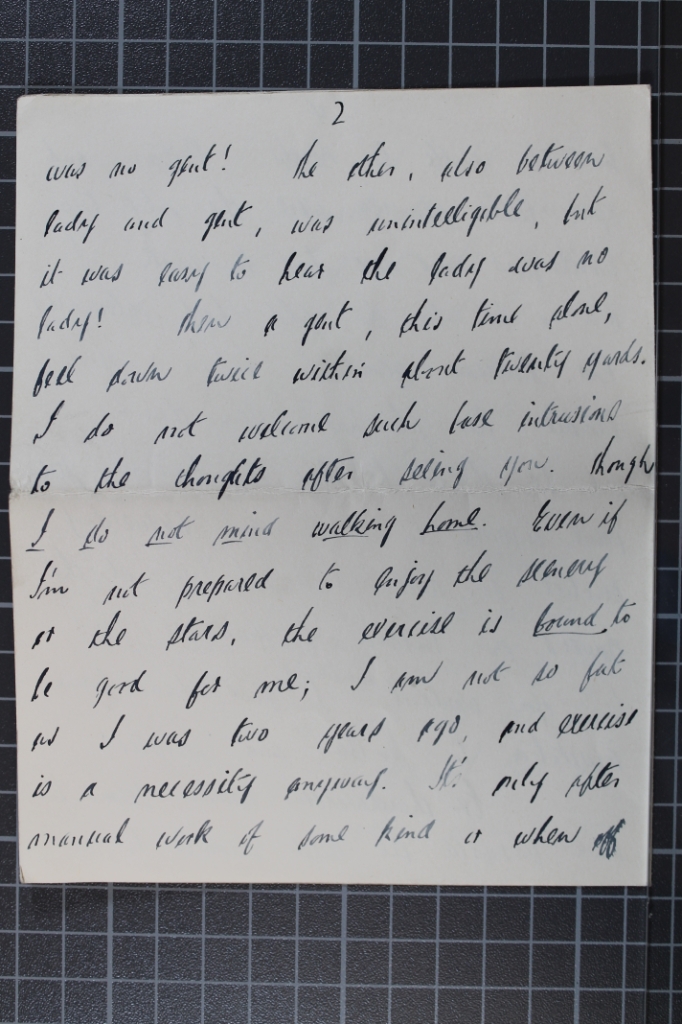 2
was no gent! The other, also between
lady and gent, was unintelligible, but
it was easy to hear the lady was no
lady! Then a gent, this time alone,
fell down twice within about twenty yards.
I do not welcome such base intrusions
to the thoughts after seeing you. Though
I do not mind walking home. Even if
I'm not prepared to enjoy the scenery
or the stars, the exercise is bound to
be good for me; I am not so fat
as I was two years ago, and exercise
is a necessity anyway. It's only after
manual work of some kind or when